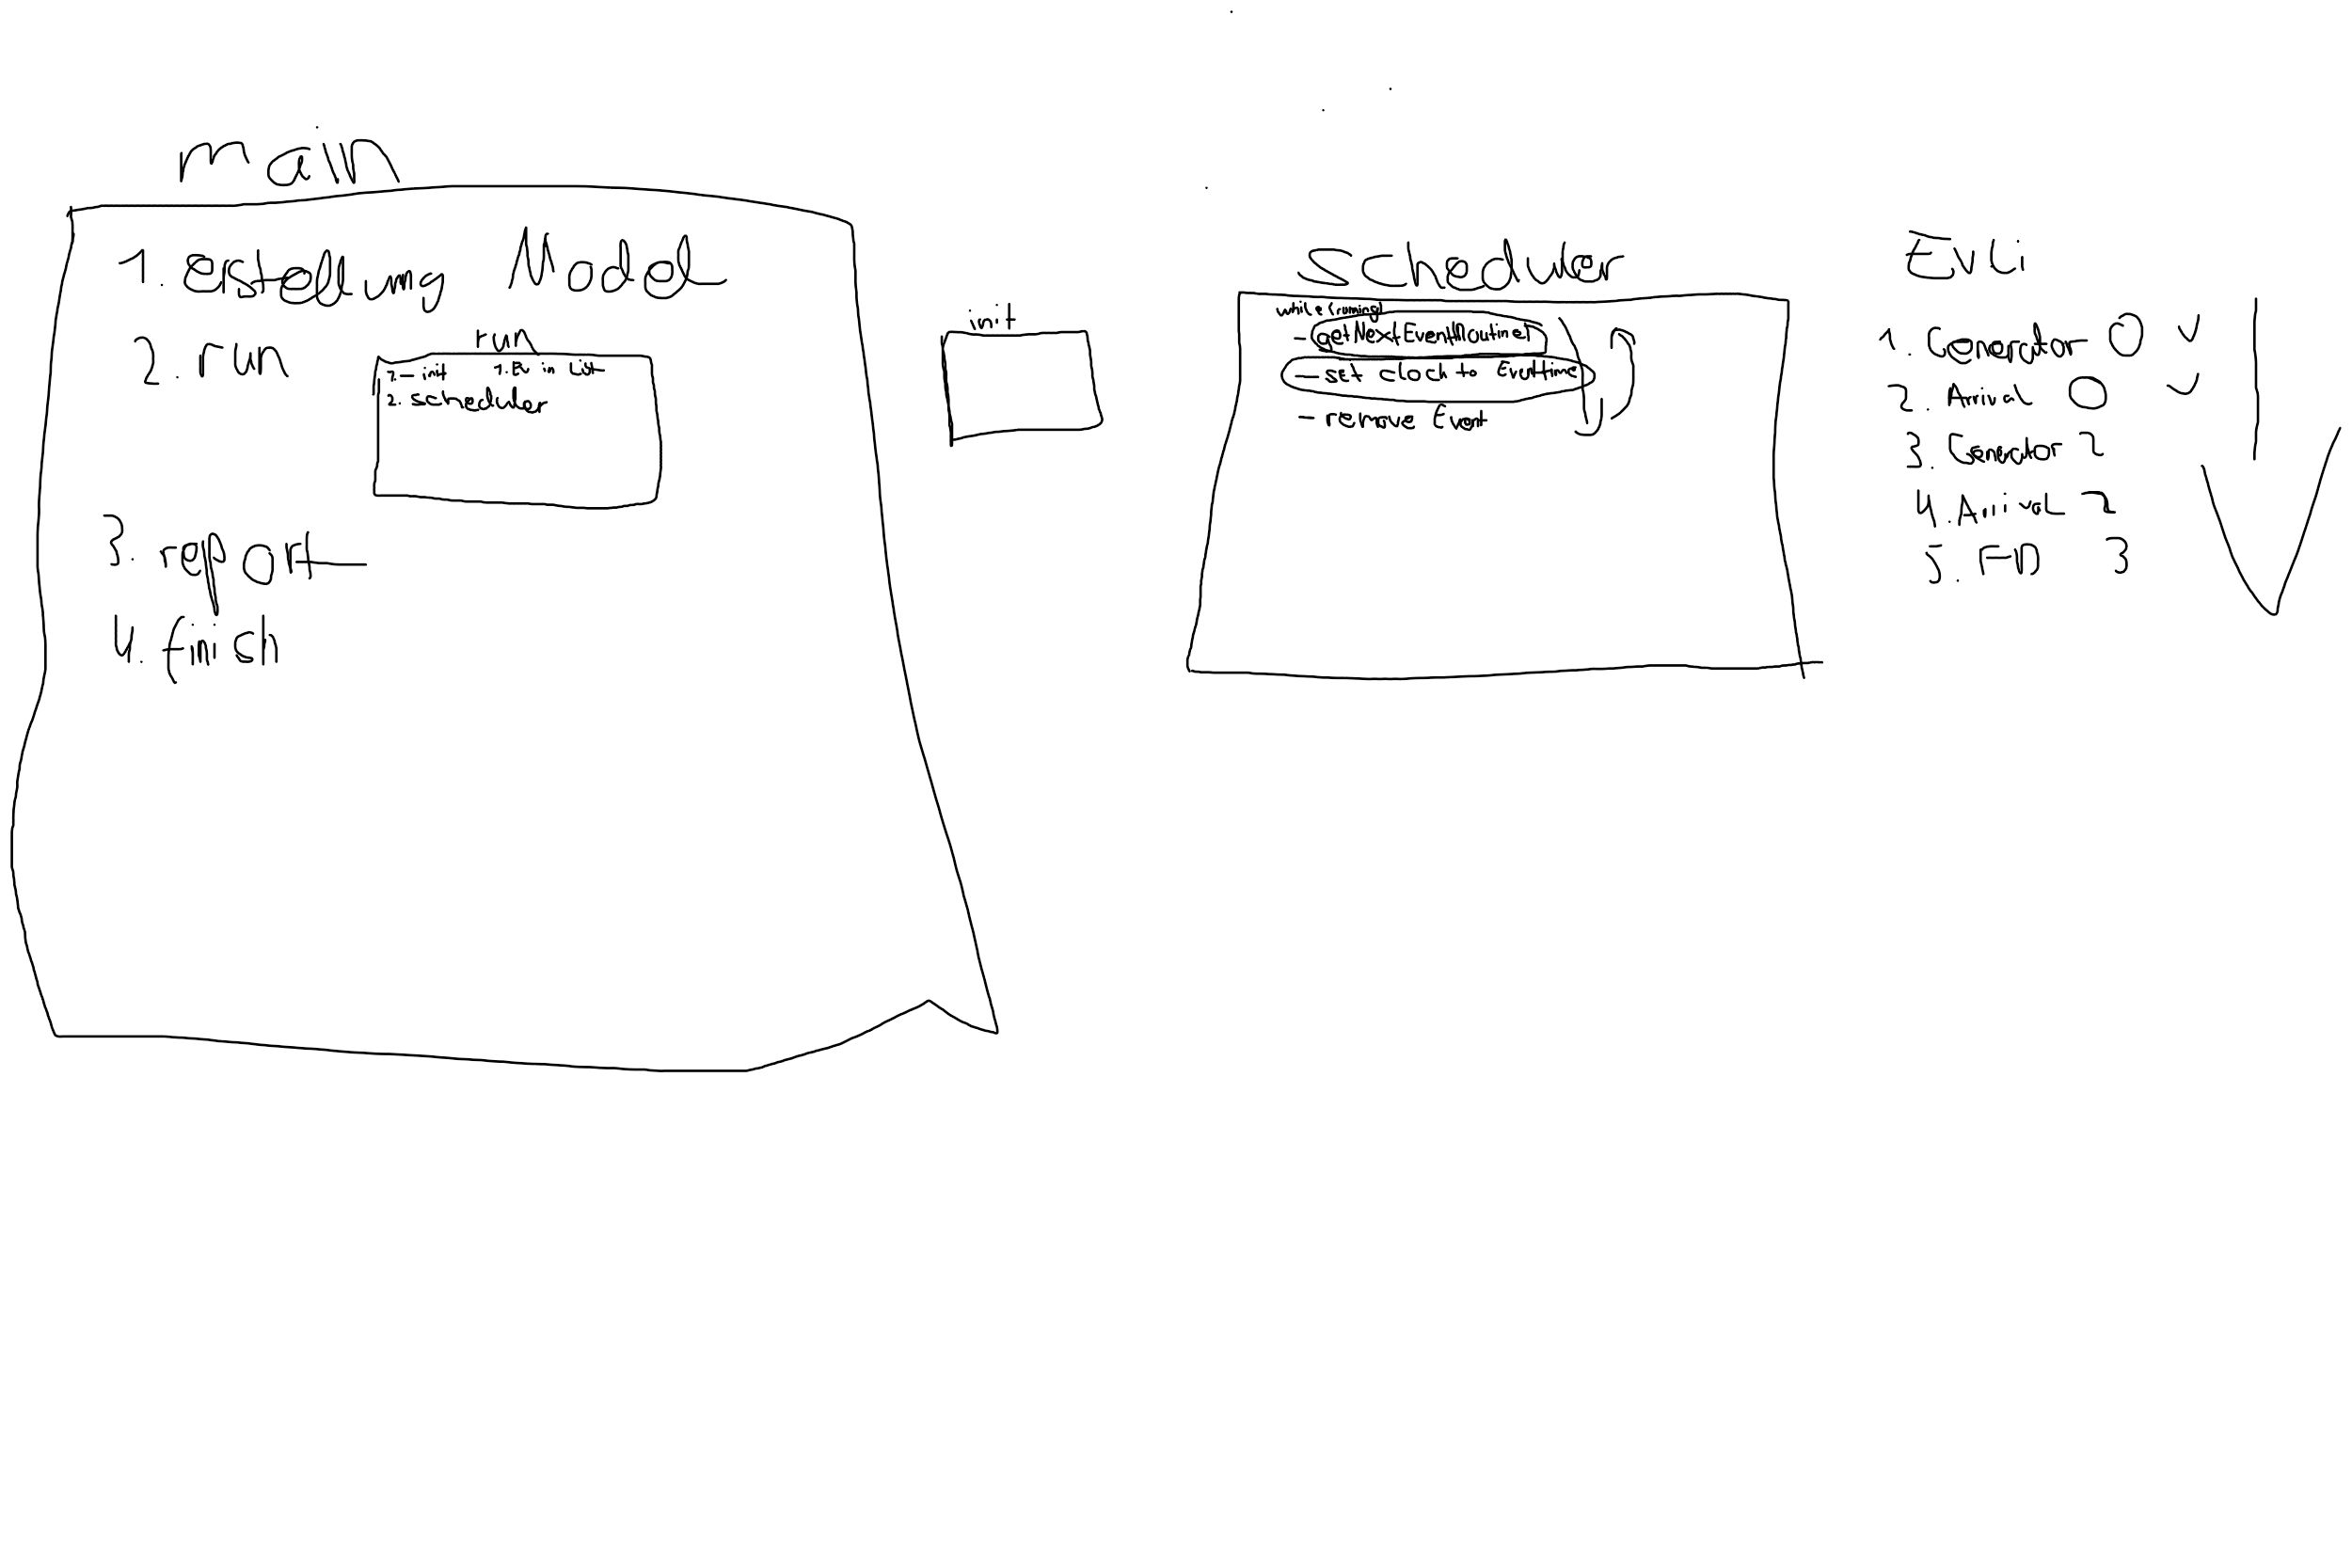 main
1. Erstellung Model
2. run
run
1. - init 1. Ev in List
2. scheduler
3. report
4. finish
init
Scheduler
while (running)
- getNextEvent(Routine)
- set clock to Eventtime
- remove Event
EvLi
1. Generator 0
2. Arrival 0
3. Generator 2
4. Arrival 2
5. FD 3